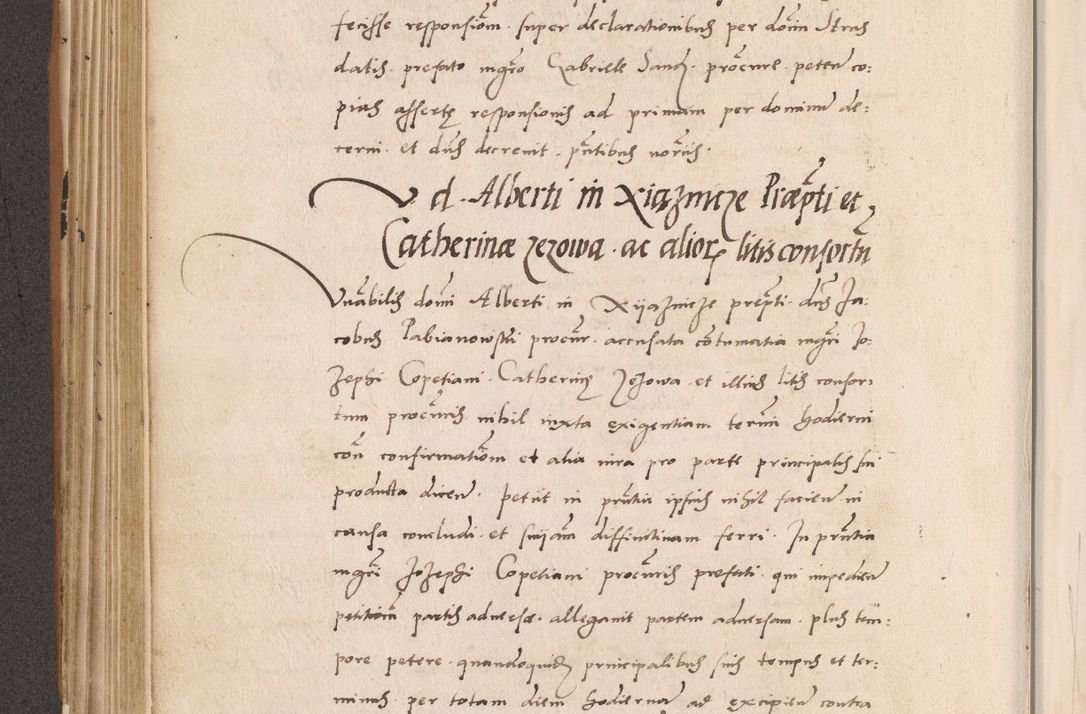 fecisse responsiom super declarationibus per dom̄ Iras
datis. prefato mgro Gabriele Sandz. procure. peten̄ co:
pias assertę responsionis ad primam per dominū de:
cerni. et dn̄s decrevit. pn̄tibus nor̄iis.
V d. Alberti in Xiąznicze Præp̄ti et
Catherinæ zezowa. ac alior litis consortū
Vn̄abilis domi Alberti in Xiiąznicze prep̄ti. dn̄s Ja:
cobus Pabianowski procur̄. accusata cōtumatia mgri Jo:
zephi Copetiani. Catherinę Zezowa. et illius litis consor:
tum procuris nihil iuxta exigentiam term̄i hodierni
con̄ confirmatiōm et alia iura pro parte principalis sui
producta dicen̄. Petiit in pn̄tia ipsius nihil facien̄ in
causa concludi. et sn̄iam diffinitivam ferri. In pn̄tia
mgri Jozephi Copetiani procuris prefati. qui impedien̄
petitiom̄ partis adversæ. allegavit partem adversam. plus tem:
pore petere. quandoquidem principalibus suis tempus et ter:
minus. per totam diem hodiernā ad excipien̄ contra